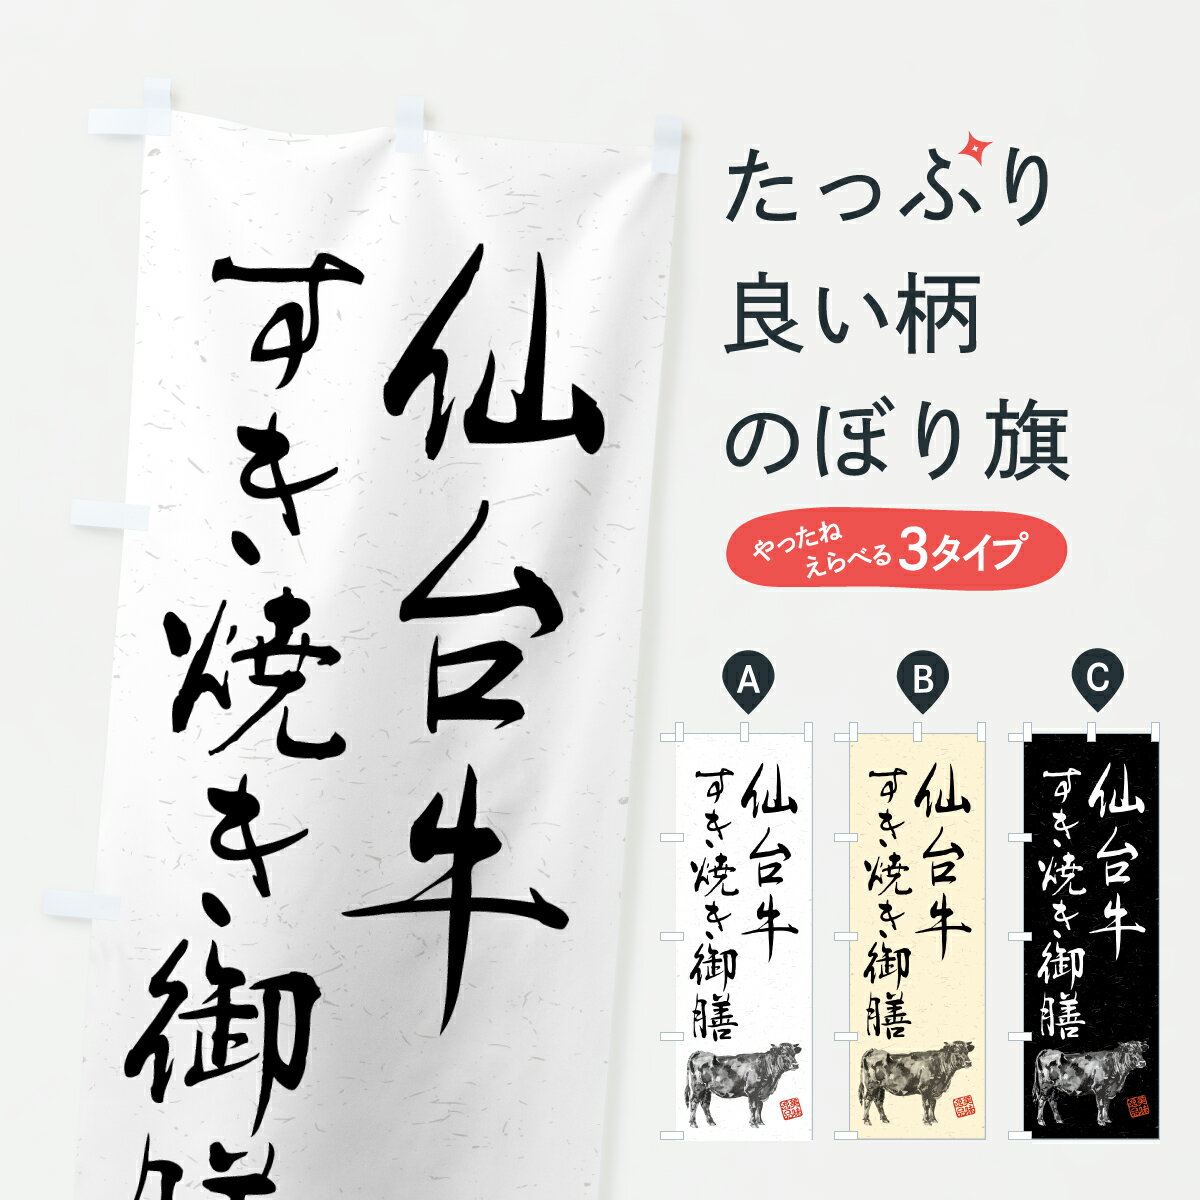 仙台牛
すき焼き御膳
たっぷり
良い柄
のぼり旗
やったね
えらべる3タイプ
A
B
C
仙台牛
すき焼き御膳
仙台牛
すき焼き御膳
仙台牛
すき焼き御膳